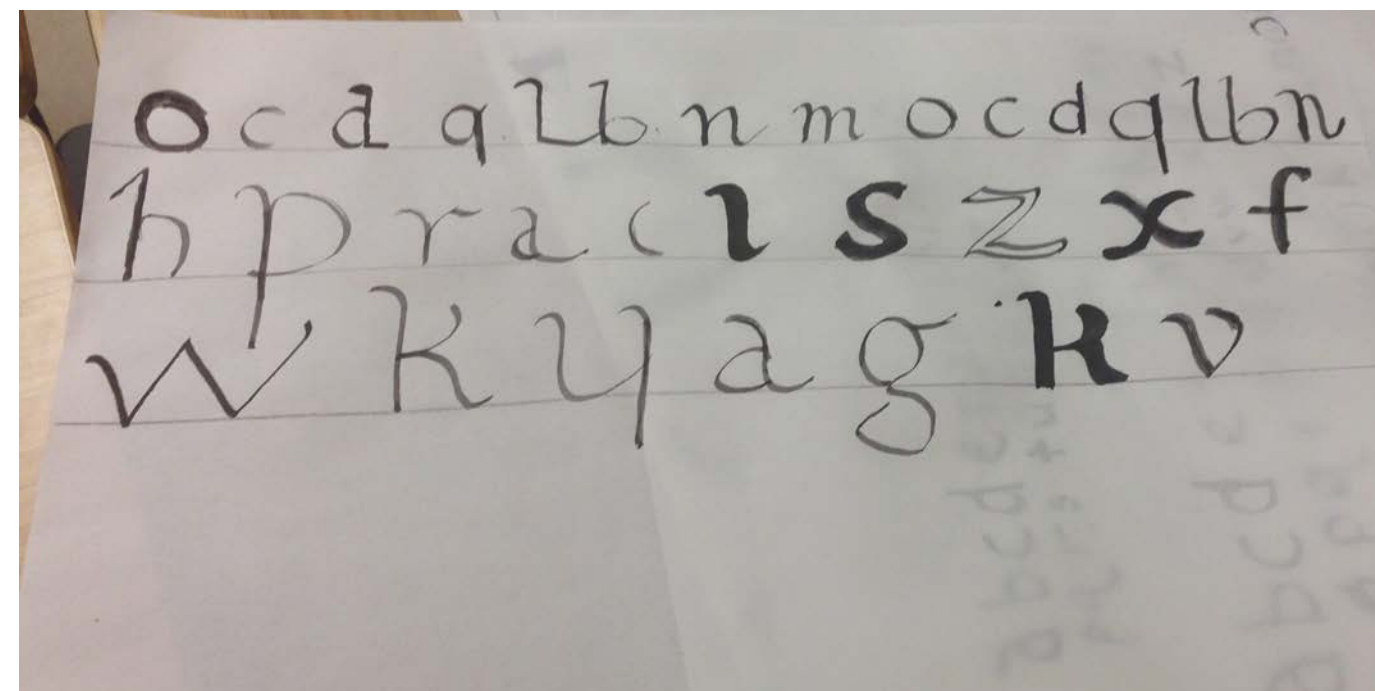 o c d q l b n m o c d q l b n
h p r a c l s z x f
w k y a g k v